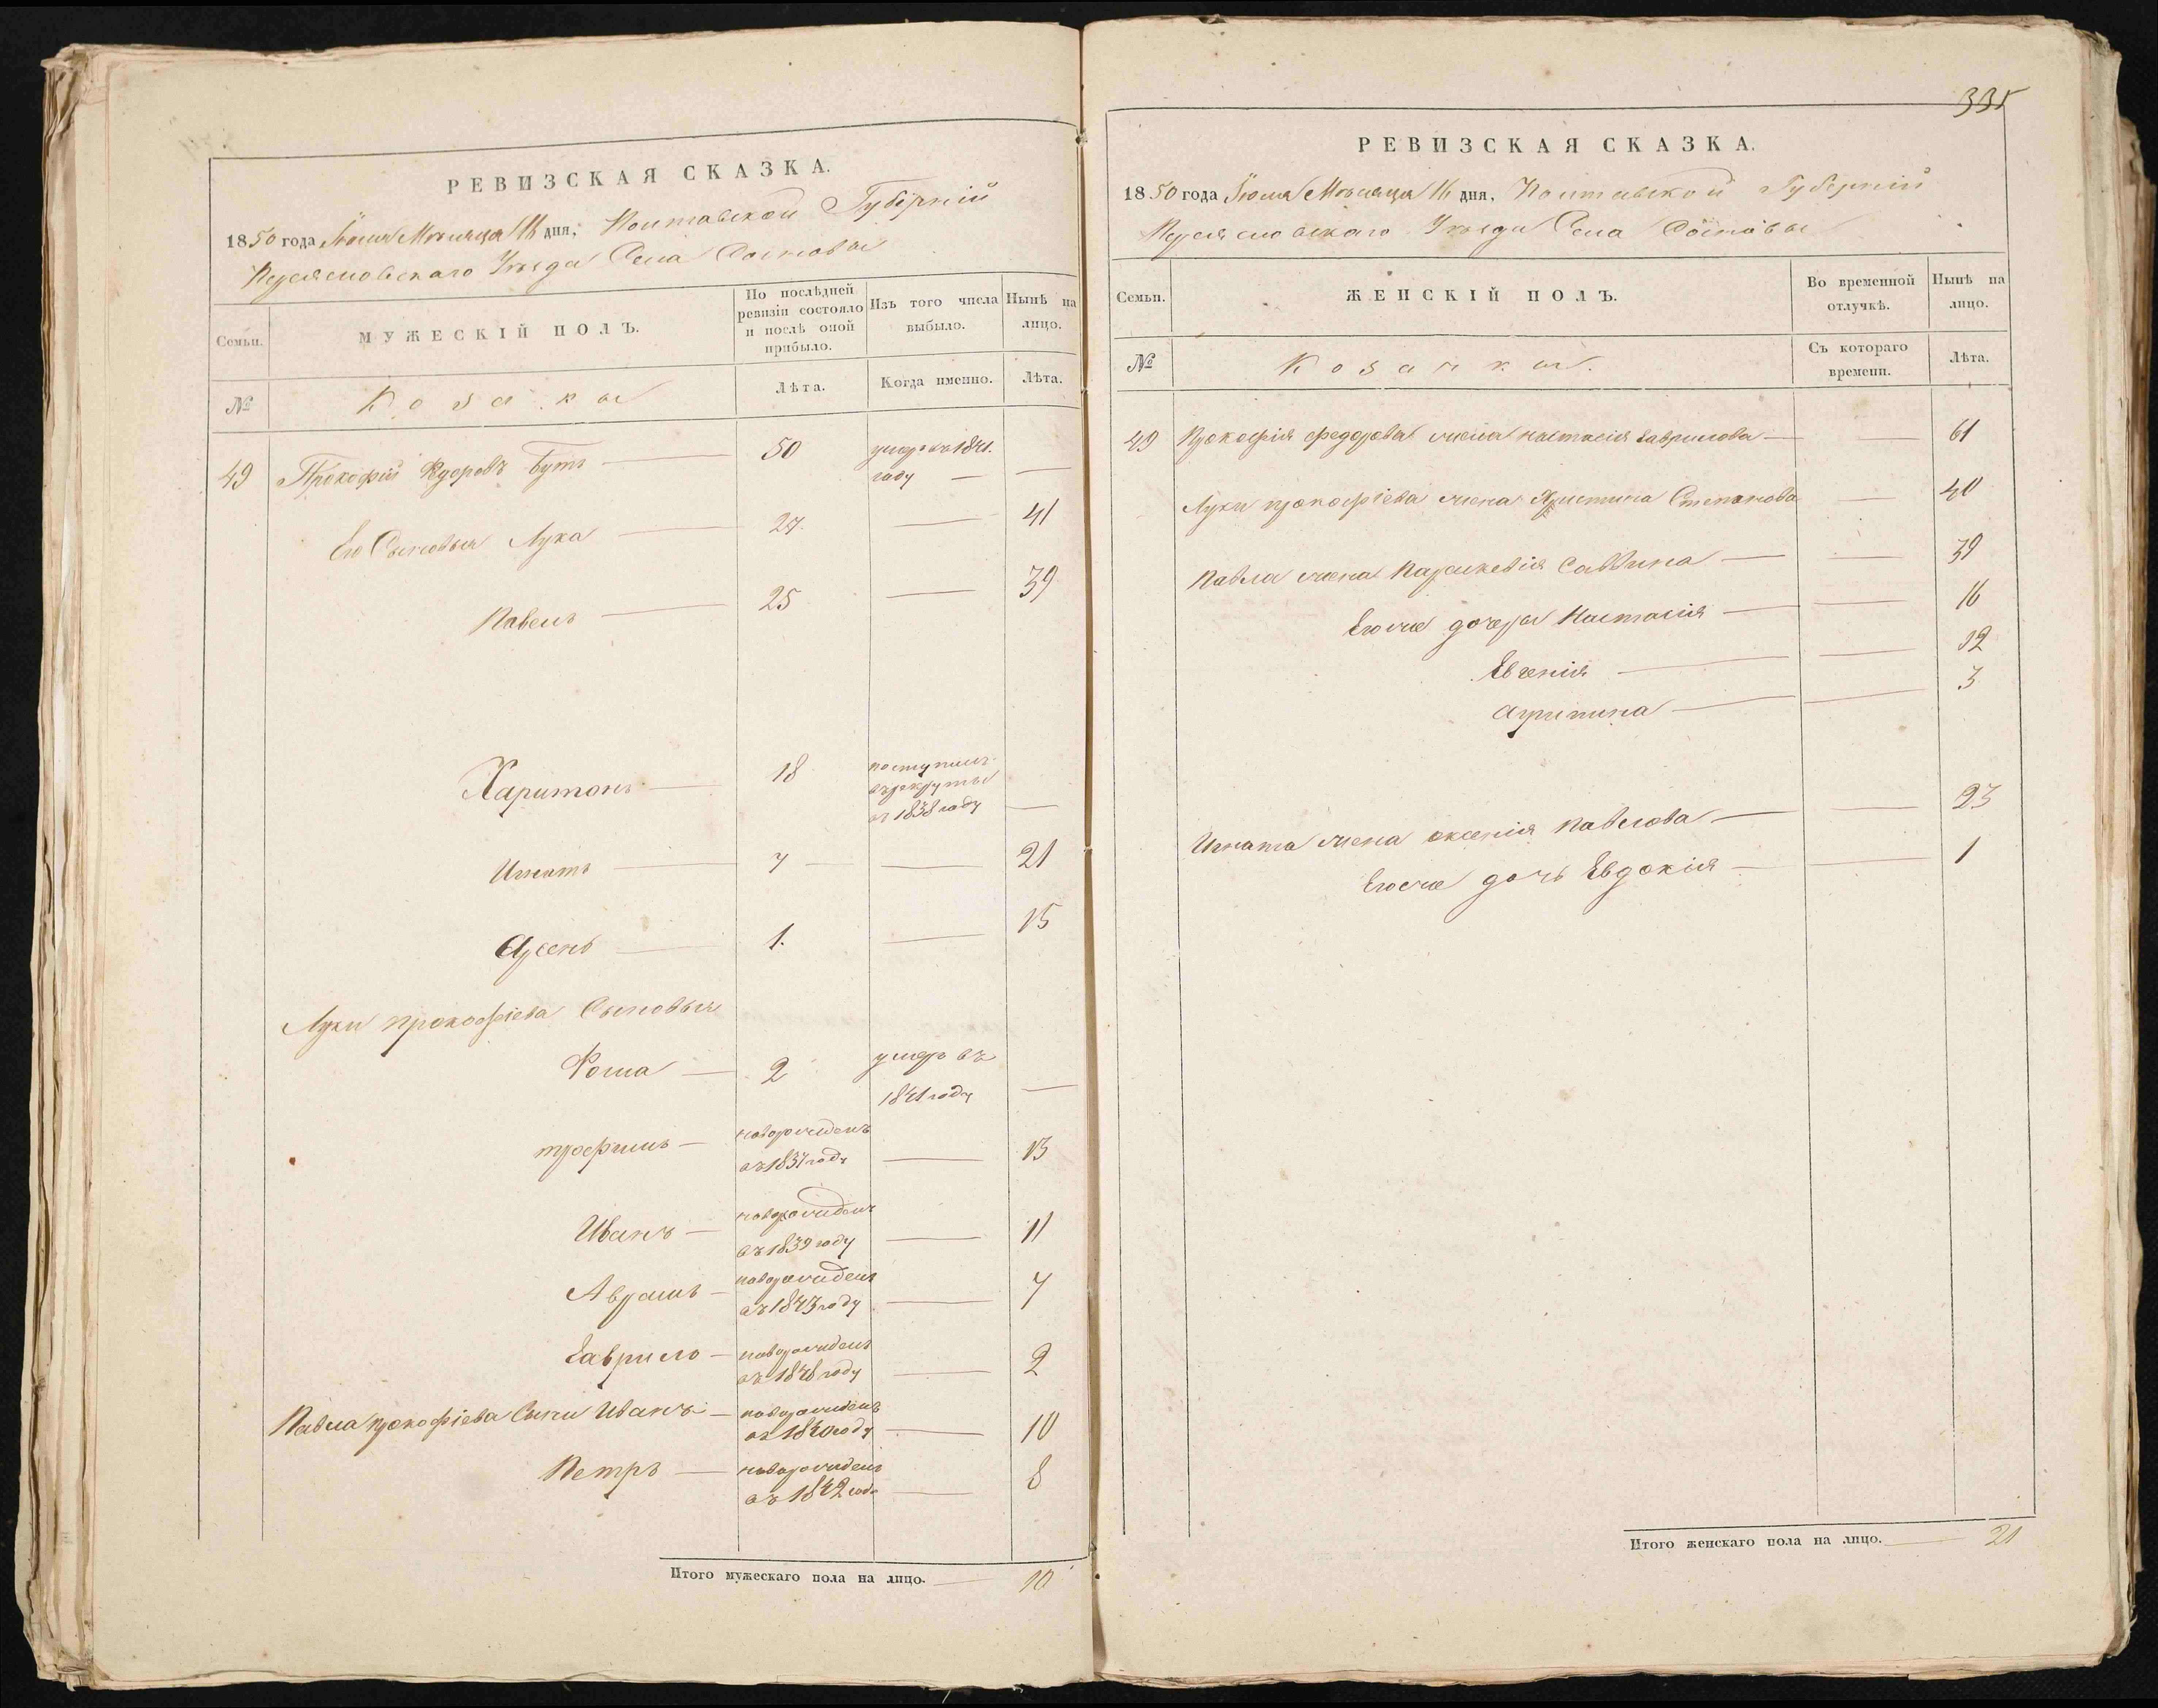 РЕВИЗСКАЯ СКАЗКА.
1850 года Іюля Мѣсяца 16 дня, Полтавской Губерніи
Переясловскаго Уѣзда Села Сосновы
Семьи.
МУЖЕСКІЙ ПОЛЪ.
По послѣдней ревизіи состояло и послѣ оной прибыло.
Изъ того числа выбыло.
Нынѣ на лицо.
№
Козаки
Лѣта.
Когда именно.
Лѣта.
49 Прокофій Федоровъ Бутъ — 50 умеръ въ 1841.
году — —
Его Сыновья Лука — 27. — 41
Павелъ — 25 — 39
Харитонъ — 18 поступилъ
въ рекруты
въ 1838 году —
Игнатъ — 7 — — 21
Арсенъ — 1. — 15
Луки Прокофіева Сыновья
Фома — 2 умеръ въ
1841 году —
Трофимъ — новорожденъ
въ 1837 году — 13
Иванъ — новорожденъ
въ 1839 году — 11
Аврамъ — новорожденъ
въ 1843 году — 7
Гаврило — новорожденъ
въ 1848 году — 2
Павла Прокофіева Сыни Иванъ — новорожденъ
въ 1840 году — 10
Петръ — новорожденъ
въ 1842 годе — 8
Итого мужескаго пола на лицо. — 10
335
РЕВИЗСКАЯ СКАЗКА.
1850 года Іюля Мѣсяца 16 дня, Полтавской Губерніи
Переясловскаго Уѣзда Села Сосновы
Семьи.
ЖЕНСКІЙ ПОЛЪ.
Во временной отлучкѣ.
Нынѣ на лицо.
№
Козачки.
Съ котораго времени.
Лѣта.
49 Прокофія Федорова жена Настасія Гаврилова — — 61
Луки Прокофіева жена Христина Степанова — 40
Павла жена Параскевія Саввина — — 39
Его же дочеры Настасія — — 16
Евгенія — — 12
Агрипина — — 3
Игната жена Оксенія Павлова — — 23
Его же дочь Евдокія — — 1
Итого женскаго пола на лицо. — 21